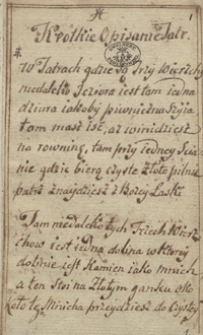 Krotkie Opisanie Tatr.
1
W Tatrach gdzie są trzy Wierzchy
niedaleko Jeziora iest tam iedna
dziura iakoby piwniczna Szyia
tam masz iść, aż wnidziesz
na rowninę, tam przy iedney Scia
nie gdzie bierą czyste złoto pilno
patrz znaydziesz z Bozey Łaski
Tam niedaleko tych Trzech Wierz
chow iest iedna dolina w ktorey
dolinie iest Kamien iako mnich
a ten stoi na Złotym ganku oko
ło tego Mnicha przeydziesz do Czystey